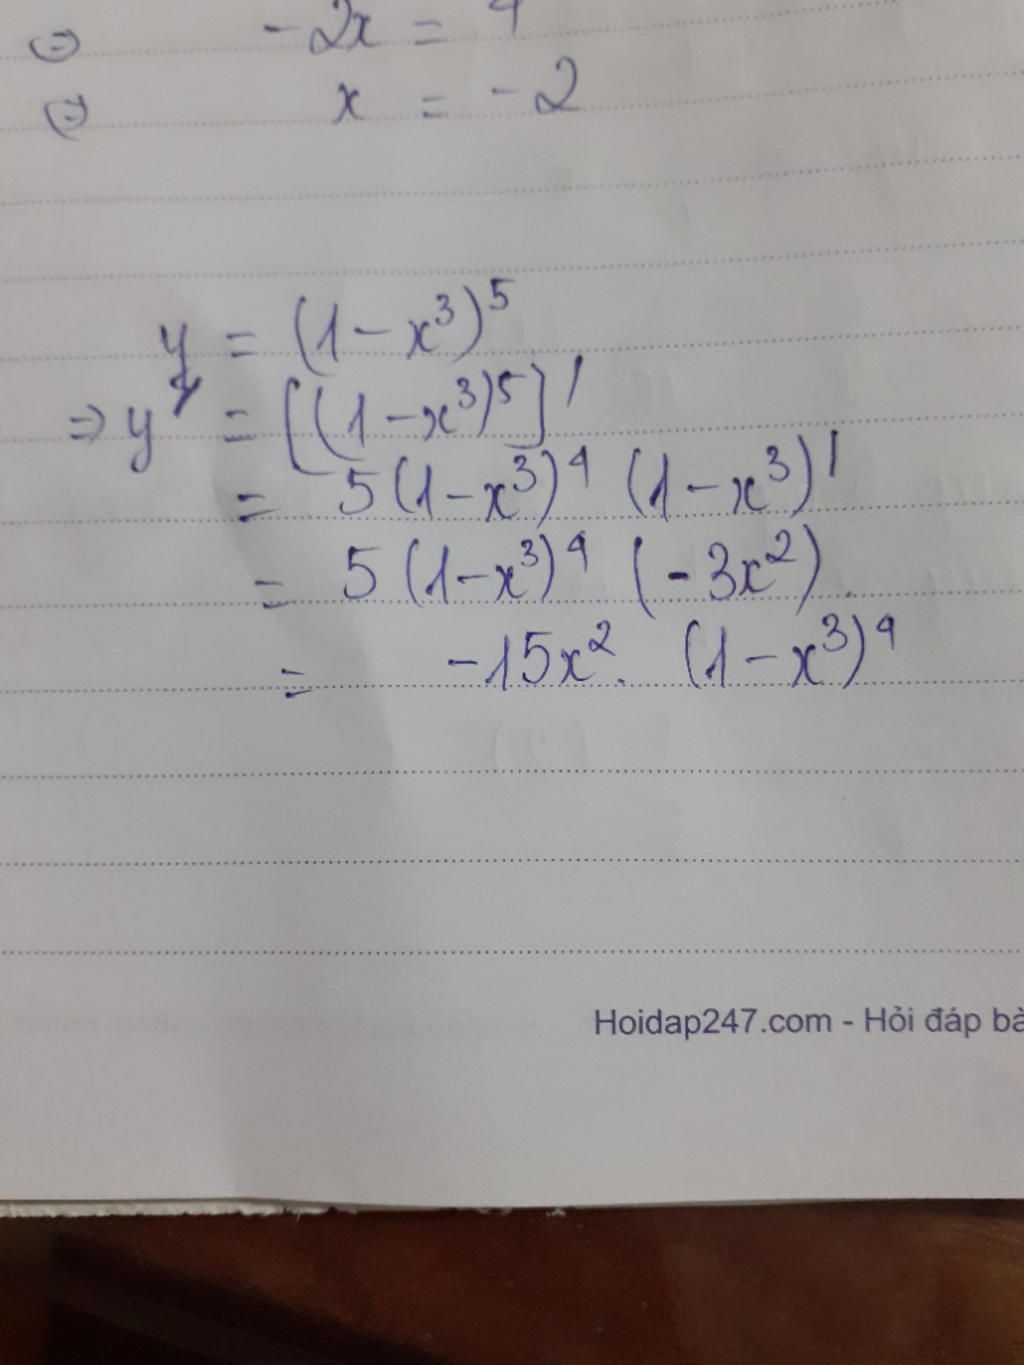 ⇔ -2x = 4
⇔ x = -2
y = (1 - x³)⁵
⇒ y' = [(1 - x³)⁵]'
= 5(1 - x³)⁴ (1 - x³)'
= 5(1 - x³)⁴ (-3x²)
= -15x². (1 - x³)⁴
Hoidap247.com - Hỏi đáp bà